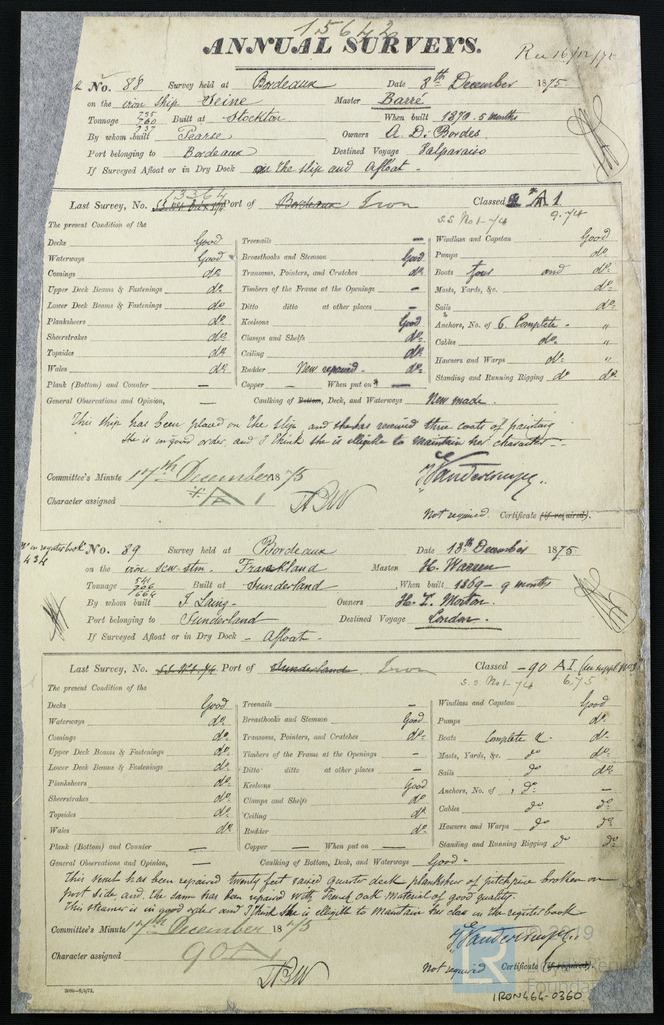 15642
ANNUAL SURVEYS.
Rec 16/12/75
No. 88 Survey held at Bordeaux Date 8th December 1875
on the iron ship Seine Master Barré
Tonnage 760 737 Built at Stockton When built 1870. 5 months
By whom built Pearse Owners A. D. Bordes
Port belonging to Bordeaux Destined Voyage Valparaiso
If Surveyed Afloat or in Dry Dock on the slip and Afloat -
Last Survey, No. 13364 Port of Bordeaux Iron Classed A 1
S.S. No 1 - 74 9.74
The present Condition of the
Decks Good
Waterways Good
Comings do.
Upper Deck Beams & Fastenings do.
Lower Deck Beams & Fastenings do.
Planksheers do.
Sheerstrakes do.
Topsides do.
Wales do.
Plank (Bottom) and Counter —
Treenails —
Breasthooks and Stemson Good
Transoms, Pointers, and Crutches do.
Timbers of the Frame at the Openings —
Ditto ditto at other places —
Keelsons Good
Clamps and Shelfs do.
Ceiling do.
Rudder New repaired. do.
Copper — When put on —
Windlass and Capstan Good
Pumps do.
Boats four and do.
Masts, Yards, &c. do.
Sails do.
Anchors, No. of 6. Complete - "
Cables do. "
Hawsers and Warps do. "
Standing and Running Rigging do do.
General Observations and Opinion, — Caulking of Bottom, Deck, and Waterways New made.
This ship has been placed on the slip and she has received three coats of painting
she is in good order and I think she is elligible to maintain her character -
Committee's Minute 17th December 1875
Character assigned A 1
Not required Certificate (if required).
No in register book 434
No. 89 Survey held at Bordeaux Date 13th December 1875
on the iron scw. stm. Frankland Master H. Warren
Tonnage 541 706 664 Built at Sunderland When built 1869 - 9 months
By whom built J Laing - Owners H. T. Morton.
Port belonging to Sunderland Destined Voyage London.
If Surveyed Afloat or in Dry Dock - Afloat -
Last Survey, No. S.S. No 1. 74 Port of Sunderland Iron Classed - 90 A I
S.S No 1 - 74 6.75
The present Condition of the
Decks Good
Waterways do.
Comings do.
Upper Deck Beams & Fastenings do.
Lower Deck Beams & Fastenings do.
Planksheers do.
Sheerstrakes do.
Topsides do.
Wales do.
Plank (Bottom) and Counter —
Treenails —
Breasthooks and Stemson Good
Transoms, Pointers, and Crutches do.
Timbers of the Frame at the Openings —
Ditto ditto at other places —
Keelsons Good
Clamps and Shelfs do.
Ceiling do.
Rudder do.
Copper — When put on —
Windlass and Capstan Good
Pumps do.
Boats Complete & do.
Masts, Yards, &c. do do.
Sails do do.
Anchors, No. of , do —
Cables do do.
Hawsers and Warps do do.
Standing and Running Rigging do do.
General Observations and Opinion, — Caulking of Bottom, Deck, and Waterways Good -
This vessel has been repaired twenty feet raised quarter deck planksheer of pitchpine broken on
port side and the same has been repaired with French oak material of good quality.
This steamer is in good order and I think she is elligible to maintain her class in the register book
Committee's Minute 17th December 1875
Character assigned 90 A
Not required Certificate (if required).
IRON464-0360